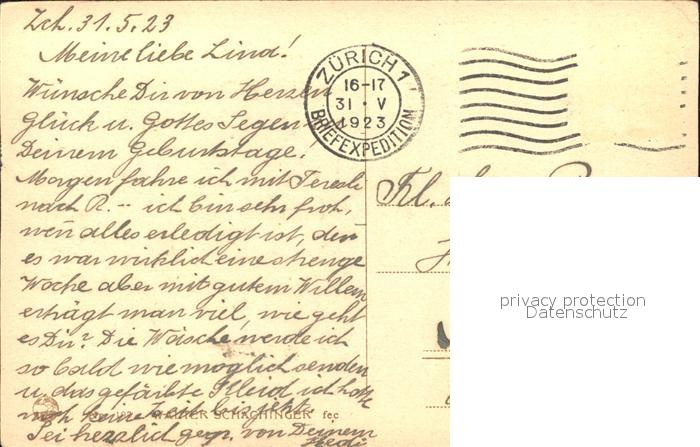 Zch. 31.5.23
Meine liebe Lind!
Wünsche Dir von Herzen
Glück u. Gottes Segen
Deinem Geburtstage.
Morgen fahre ich mit Teresli
nach R. -- ich bin sehr froh,
wen alles erledigt ist, den
es war wirklich eine strenge
Woche aber mit gutem Willem
erträgt man viel, wie geht
es Dir? Die Wäsche werde ich
so bald wie möglich senden
u. das gefärbte Kleid, ich hatte
noch keine Zeit bis jetzt.
Sei herzlich gegr. von Deinem
Hedi
ZÜRICH 1
16-17
31 · V
1923
BRIEFEXPEDITION
Frl.
WALTER SCHACHINGER fec
privacy protection
Datenschutz